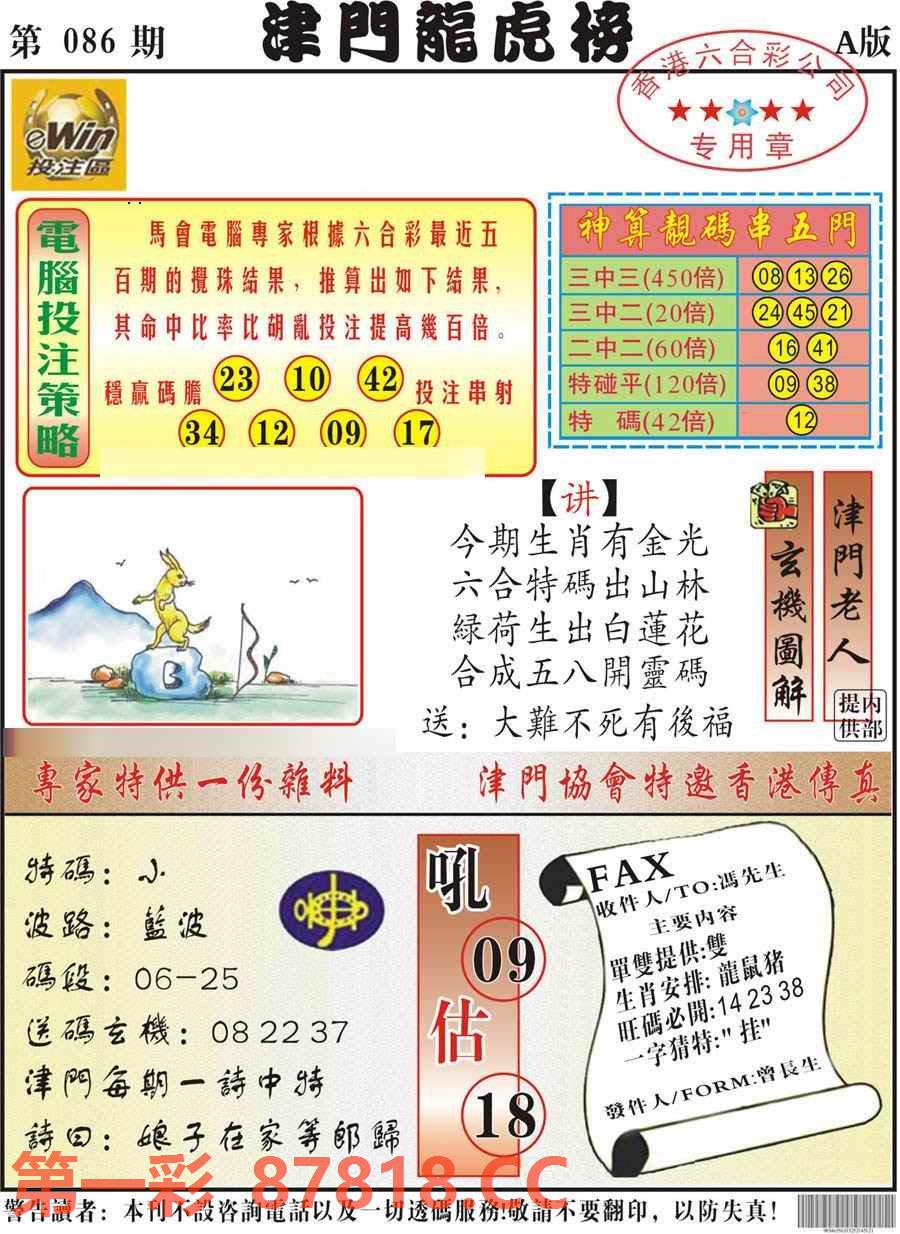 第 086 期
津門龍虎榜
A版
香港六合彩公司
专用章
eWin
投注區
電腦投注策略
馬會電腦專家根據六合彩最近五
百期的攪珠結果，推算出如下結果，
其命中比率比胡亂投注提高幾百倍。
穩贏碼膽 23 10 42 投注串射
34 12 09 17
神算靚碼串五門
三中三(450倍) 08 13 26
三中二(20倍) 24 45 21
二中二(60倍) 16 41
特碰平(120倍) 09 38
特 碼(42倍) 12
【讲】
今期生肖有金光
六合特碼出山林
緑荷生出白蓮花
合成五八開靈碼
送：大難不死有後福
玄機圖解
津門老人
内部提供
專家特供一份雜料
津門協會特邀香港傳真
特碼：小
波路：藍波
碼段：06-25
送碼玄機：08 22 37
津門每期一詩中特
詩曰：娘子在家等郎歸
吼
09
估
18
FAX
收件人/TO:馮先生
主要内容
單雙提供:雙
生肖安排:龍鼠猪
旺碼必開:14 23 38
一字猜特:"挂"
發件人/FORM:曾長生
第一彩 87818.CC
警告讀者：本刊不設咨詢電話以及一切透碼服務!敬請不要翻印，以防失真！